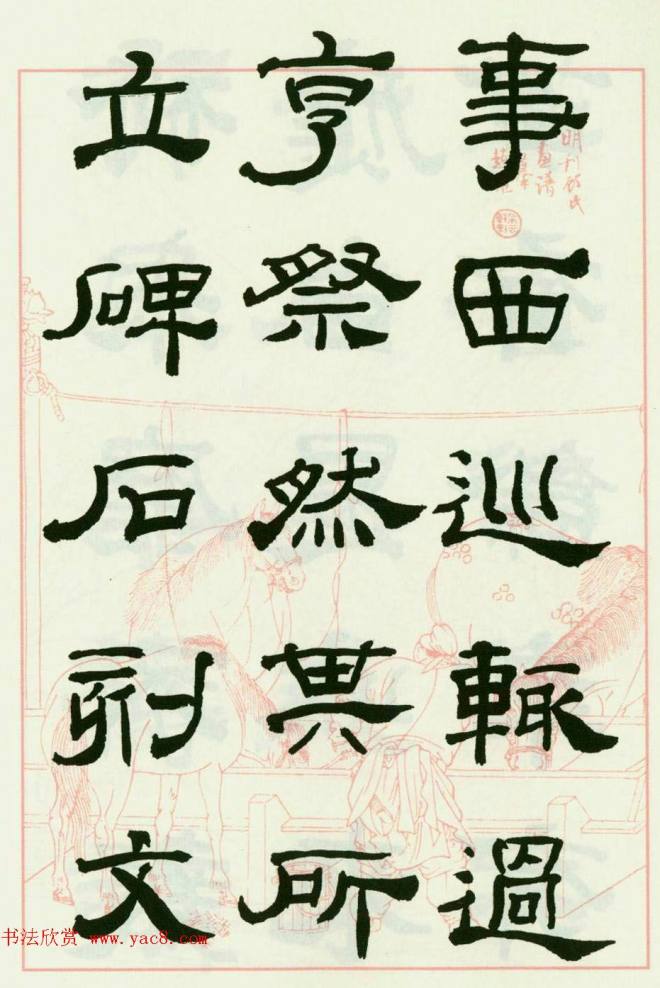 事西巡輒過
亨祭然其所
立碑石刻文
明刊顧氏
畫譜
书法欣赏 www.yac8.com